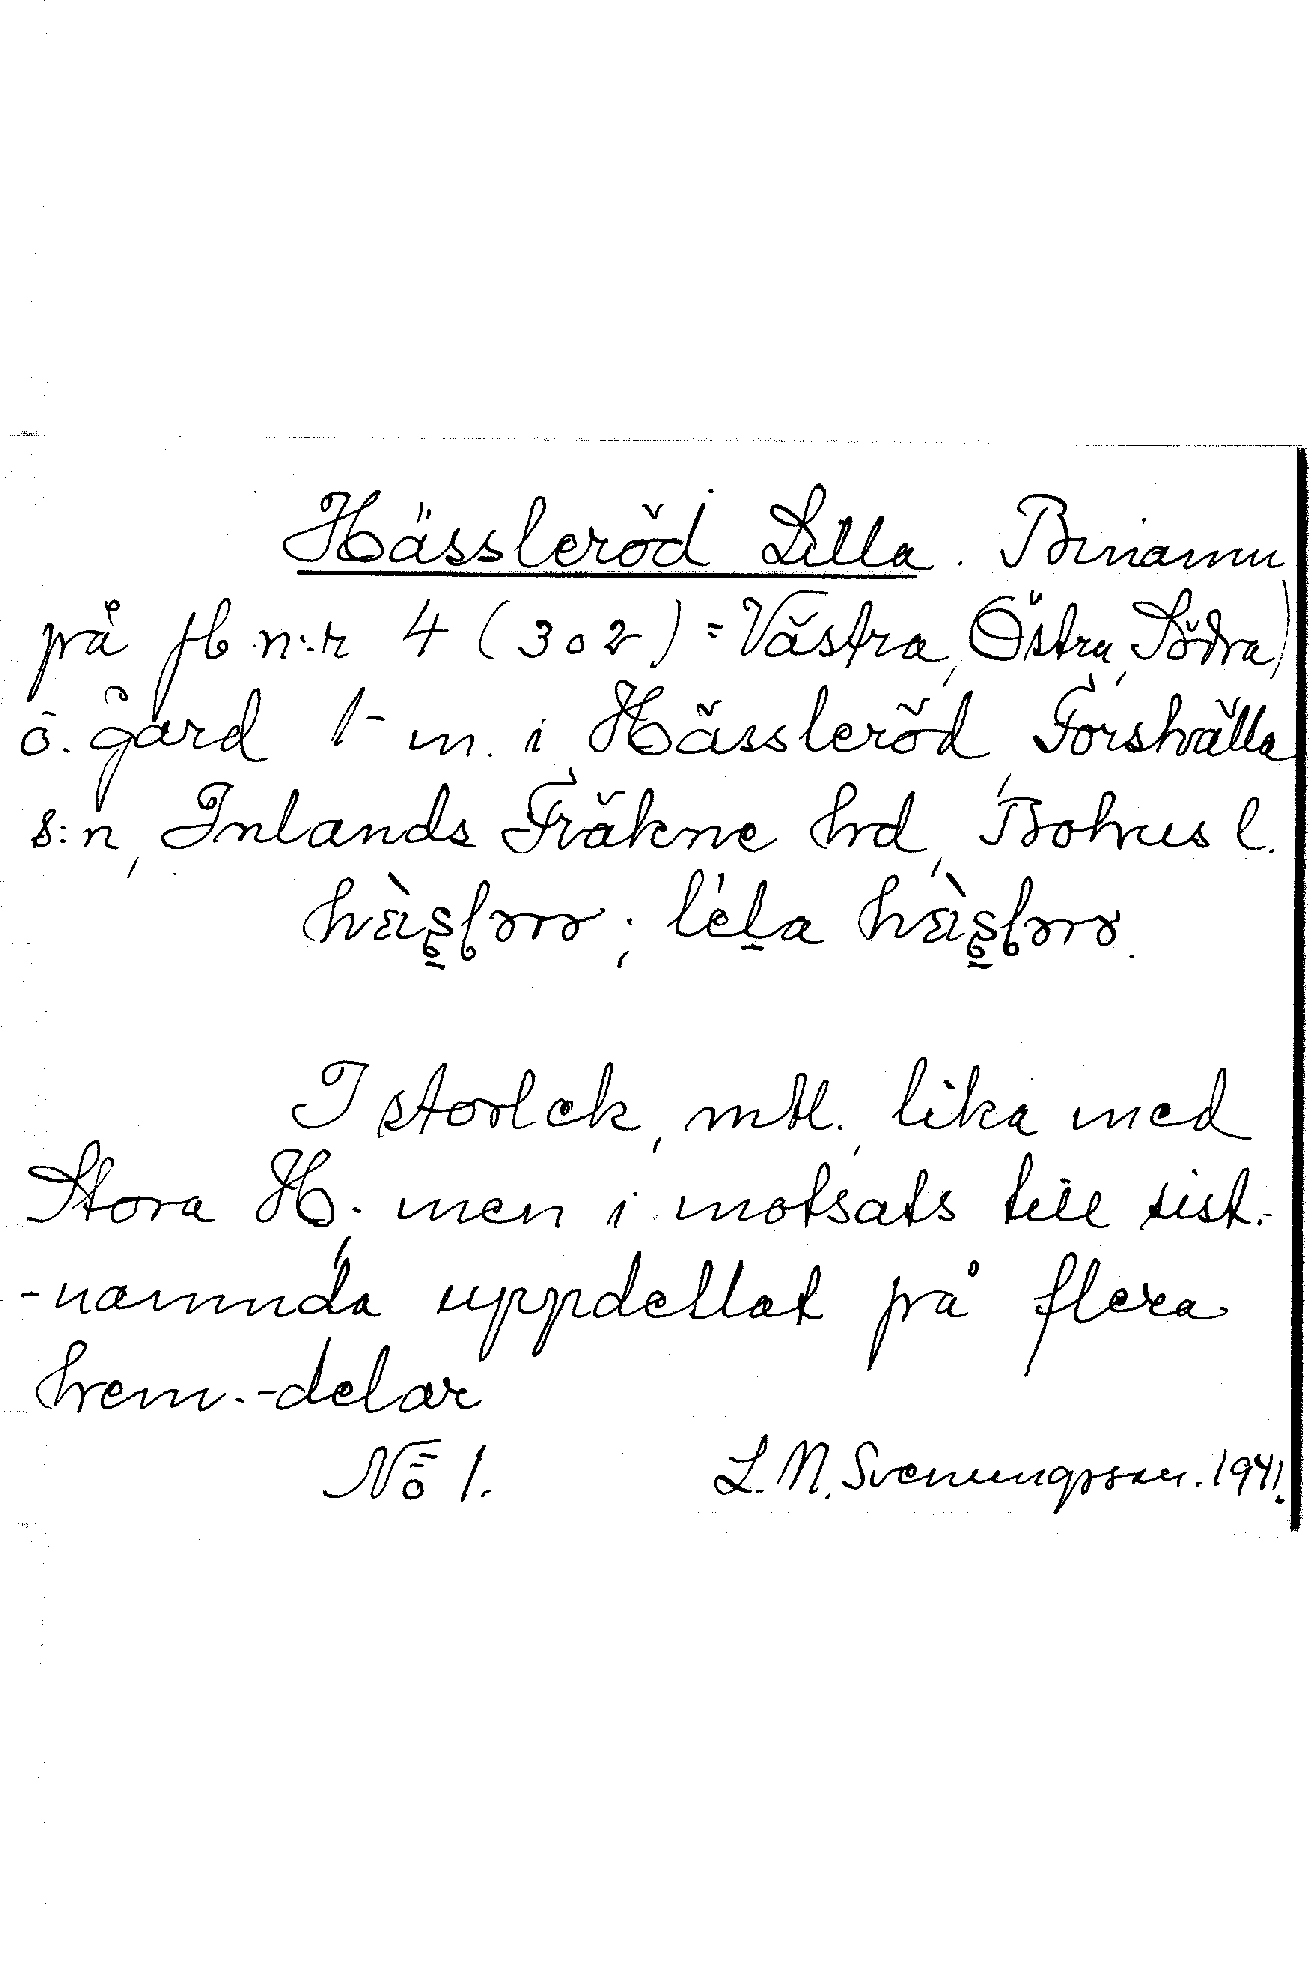 Hässleröd Lilla. Binamn
på jb n:r 4 (3 o 2) = Västra, Östra, Södra)
o. gård i Hässleröd, Forshälla
s:n, Inlands Fräkne hrd, Bohus l.
I storlek, mtl., lika med
Stora H., men i motsats till sist-
-namnda uppdellat på flera
hem.-delar
No 1. L. N. Svenungsson. 1941.